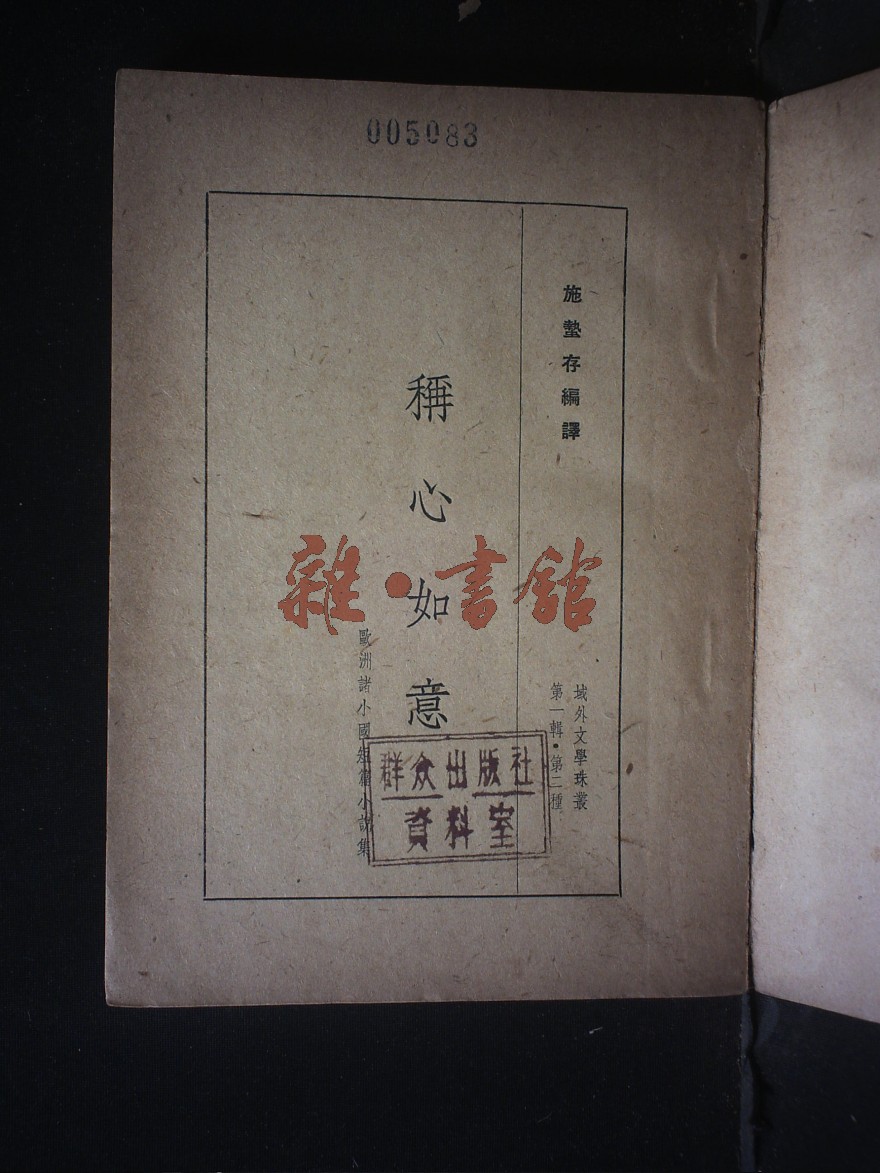 005083
施蟄存編譯
域外文學珠叢
第一輯·第二種
稱心如意
歐洲諸小國短篇小說集
雜·書館
群众出版社
資料室